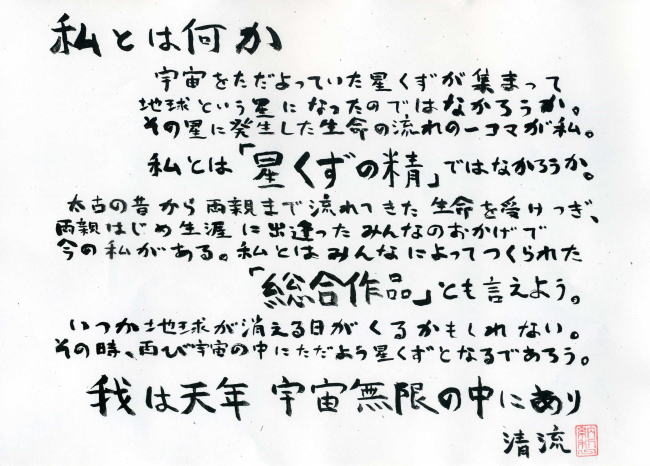 私とは何か
宇宙をただよっていた星くずが集まって
地球という星になったのではなかろうか。
その星に発生した生命の流れの一コマが私。
私とは「星くずの精」ではなかろうか。
太古の昔から両親まで流れてきた生命を受けつぎ、
両親はじめ生涯に出逢ったみんなのおかげで
今の私がある。私とはみんなによってつくられた
「総合作品」とも言えよう。
いつか地球が消える日がくるかもしれない。
その時、再び宇宙の中にただよう星くずとなるであろう。
我は天年 宇宙無限の中にあり
清流